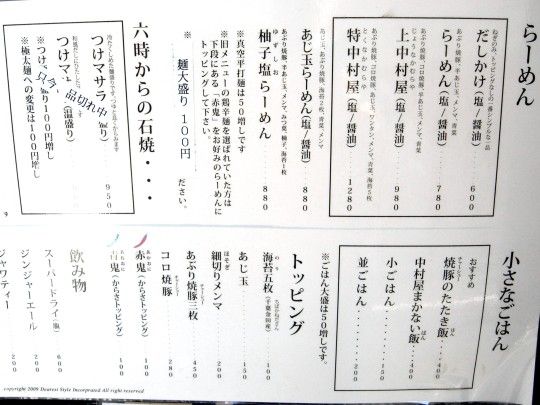 らーめん
ねぎのみ、トッピングなしの一番シンプルな一品
だしかけ(塩/醤油) 600
あぶり焼豚、半あじ玉、メンマ、青菜
らーめん(塩/醤油) 780
じょうなかむらや
あぶり焼豚、コロ焼豚、あじ玉、メンマ、青菜
上中村屋(塩/醤油) 980
とくなかむらや
あぶり焼豚、コロ焼豚、あじ玉、ワンタン、メンマ、青菜、海苔5枚
特中村屋(塩/醤油) 1280
あじ玉、あぶり焼豚、海苔2枚、青菜、メンマ
あじ玉らーめん(塩/醤油) 880
あぶり焼豚、半あじ玉、メンマ、みつ葉、柚子、海苔1枚
ゆずしお
柚子塩らーめん 880
※真空平打麺は50増しです
※旧メニューの鶏辛麺を選ばれていた方は
下段にある「赤鬼」をお好みのらーめんに
トッピングして下さい。
※ 麺大盛り 100円 ださい。
六時からの石焼・・・
つけマサラ
950
つけマ (温盛り)
品切れ中
※つけ り100円増し
※極太麺への変更は100円増し
9
小さなごはん
おすすめ
チャーシュー はん
焼豚のたたき飯 400
はん
中村屋まかない飯 400
小ごはん 150
並ごはん 200
※ごはん大盛は50増しです。
トッピング
のり
海苔五枚(千葉金田産) 100
あじ玉 150
ほそぎ
細切りメンマ 200
チャーシュー
あぶり焼豚三枚 450
チャーシュー
コロ焼豚 280
あかおに
赤鬼(からさトッピング) 100
あおおに
青鬼(からさトッピング) 100
飲み物
スーパードライ(缶) 600
ジンジャーエール 200
ジャワティー 200
copyright 2009 Dearest Style Incorporated All right reserved